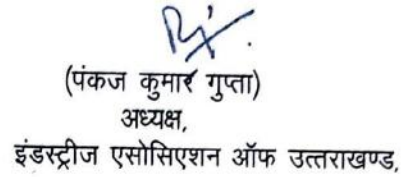 (पंकज कुमार गुप्ता)
अध्यक्ष,
इंडस्ट्रीज एसोसिएशन ऑफ उत्तराखण्ड,